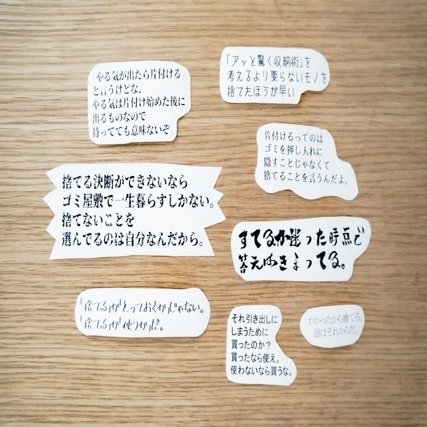 やる気が出たら片付ける
と言うけどな、
やる気は片付け始めた後に
出るものなので
待ってても意味ないぞ
「アッと驚く収納術」を
考えるより要らないモノを
捨てたほうが早い
片付けるってのは
ゴミを押し入れに
隠すことじゃなくて
捨てることを言うんだよ。
捨てる決断ができないなら
ゴミ屋敷で一生暮らすしかない。
捨てないことを
選んでるのは自分なんだから。
すてるか迷った時点で
答えはきまってる。
「捨てるか」とっておくか」じゃない。
「捨てるか」使うか」だ。
それ引き出しに
しまうために
買ったのか？
買ったなら使え。
使わないなら買うな。
わかったから捨てろ。
話はそれからだ。